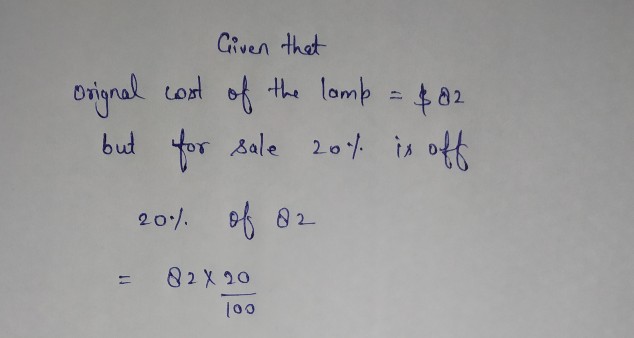 Given that
orignal cost of the lamp = $ 82
but for sale 20% is off
20% of 82
= 82 X 20
100